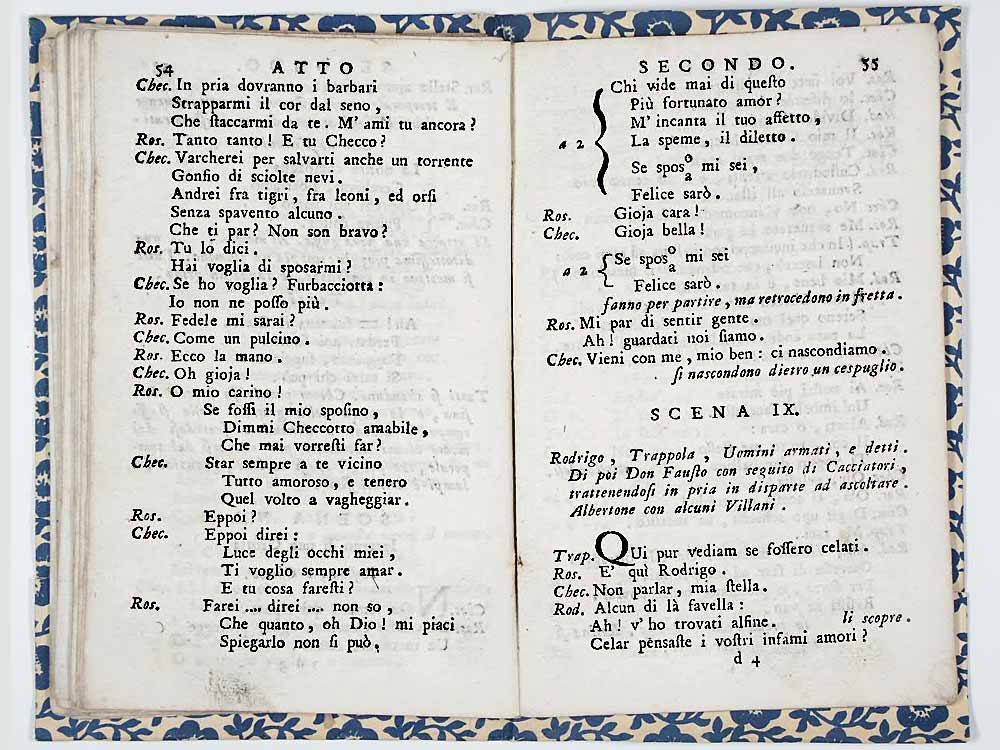 54 ATTO
Chec. In pria dovranno i barbari
Strapparmi il cor dal seno,
Che ſtaccarmi da te. M' ami tu ancora?
Ros. Tanto tanto! E tu Checco?
Chec. Varcherei per salvarti anche un torrente
Gonfio di sciolte nevi.
Andrei fra tigri, fra leoni, ed orſi
Senza spavento alcuno.
Che ti par? Non son bravo?
Ros. Tu lo dici.
Hai voglia di sposarmi?
Chec. Se ho voglia? Furbacciotta:
Io non ne poſſo più.
Ros. Fedele mi sarai?
Chec. Come un pulcino.
Ros. Ecco la mano.
Chec. Oh gioja!
Ros. O mio carino!
Se foſſi il mio spoſino,
Dimmi Checcotto amabile,
Che mai vorreſti far?
Chec. Star sempre a te vicino
Tutto amoroso, e tenero
Quel volto a vagheggiar.
Ros. Eppoi?
Chec. Eppoi direi:
Luce degli occhi miei,
Ti voglio sempre amar.
E tu cosa fareſti?
Ros. Farei .... direi .... non so,
Che quanto, oh Dio! mi piaci
Spiegarlo non ſi può,
SECONDO. 55
Chi vide mai di queſto
Più fortunato amor?
M' incanta il tuo affetto,
a 2 La speme, il diletto.
Se sposo/a mi sei,
Felice sarò.
Ros. Gioja cara!
Chec. Gioja bella!
a 2 Se sposo/a mi sei
Felice sarò.
fanno per partire, ma retrocedono in fretta.
Ros. Mi par di sentir gente.
Ah! guardati noi ſiamo.
Chec. Vieni con me, mio ben: ci nascondiamo.
ſi nascondono dietro un cespuglio.
SCENA IX.
Rodrigo, Trappola, Uomini armati, e detti.
Di poi Don Fauſto con seguito di Cacciatori,
trattenendoſi in pria in disparte ad ascoltare.
Albertone con alcuni Villani.
Trap. QUi pur vediam se foſſero celati.
Ros. E' quì Rodrigo.
Chec. Non parlar, mia ſtella.
Rod. Alcun di là favella:
Ah! v' ho trovati alfine. li scopre.
Celar pensaſte i voſtri infami amori?
d 4